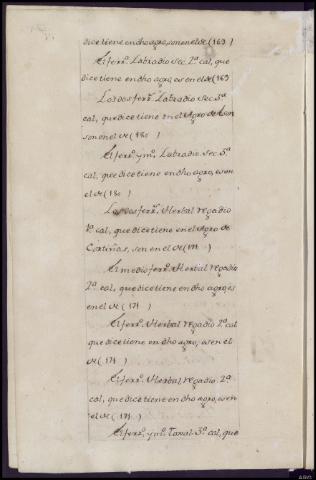 dice tiene en dho agro, son en el de (169)
El ferrº. Labradio sec. 2ª cal, que
dice tiene en dho agro, es en el de (169
Los dos ferrº. Labradio sec. 3ª
cal, que dice tiene en el Agro de
son en el de (180)
El ferrº. y mº. Labradio sec. 3ª
cal, que dice tiene en dho agro, es en
el de (180)
Los dos ferrº. Herbal regadio
1ª cal, que dice tiene en el Agro de
Cortiñas, son en el de (171)
El medio ferrº. Herbal regadio
2ª cal, que dice tiene en dho agro, es
en el de (171)
El ferrº. Herbal regadio 2ª cal
que dice tiene en dho agro, es en el
de (171)
El ferrº. Herbal regadio 2ª
cal, que dice tiene en dho agro, es en
el de (171)
El ferrº. y mº. Toxal 3ª cal, que